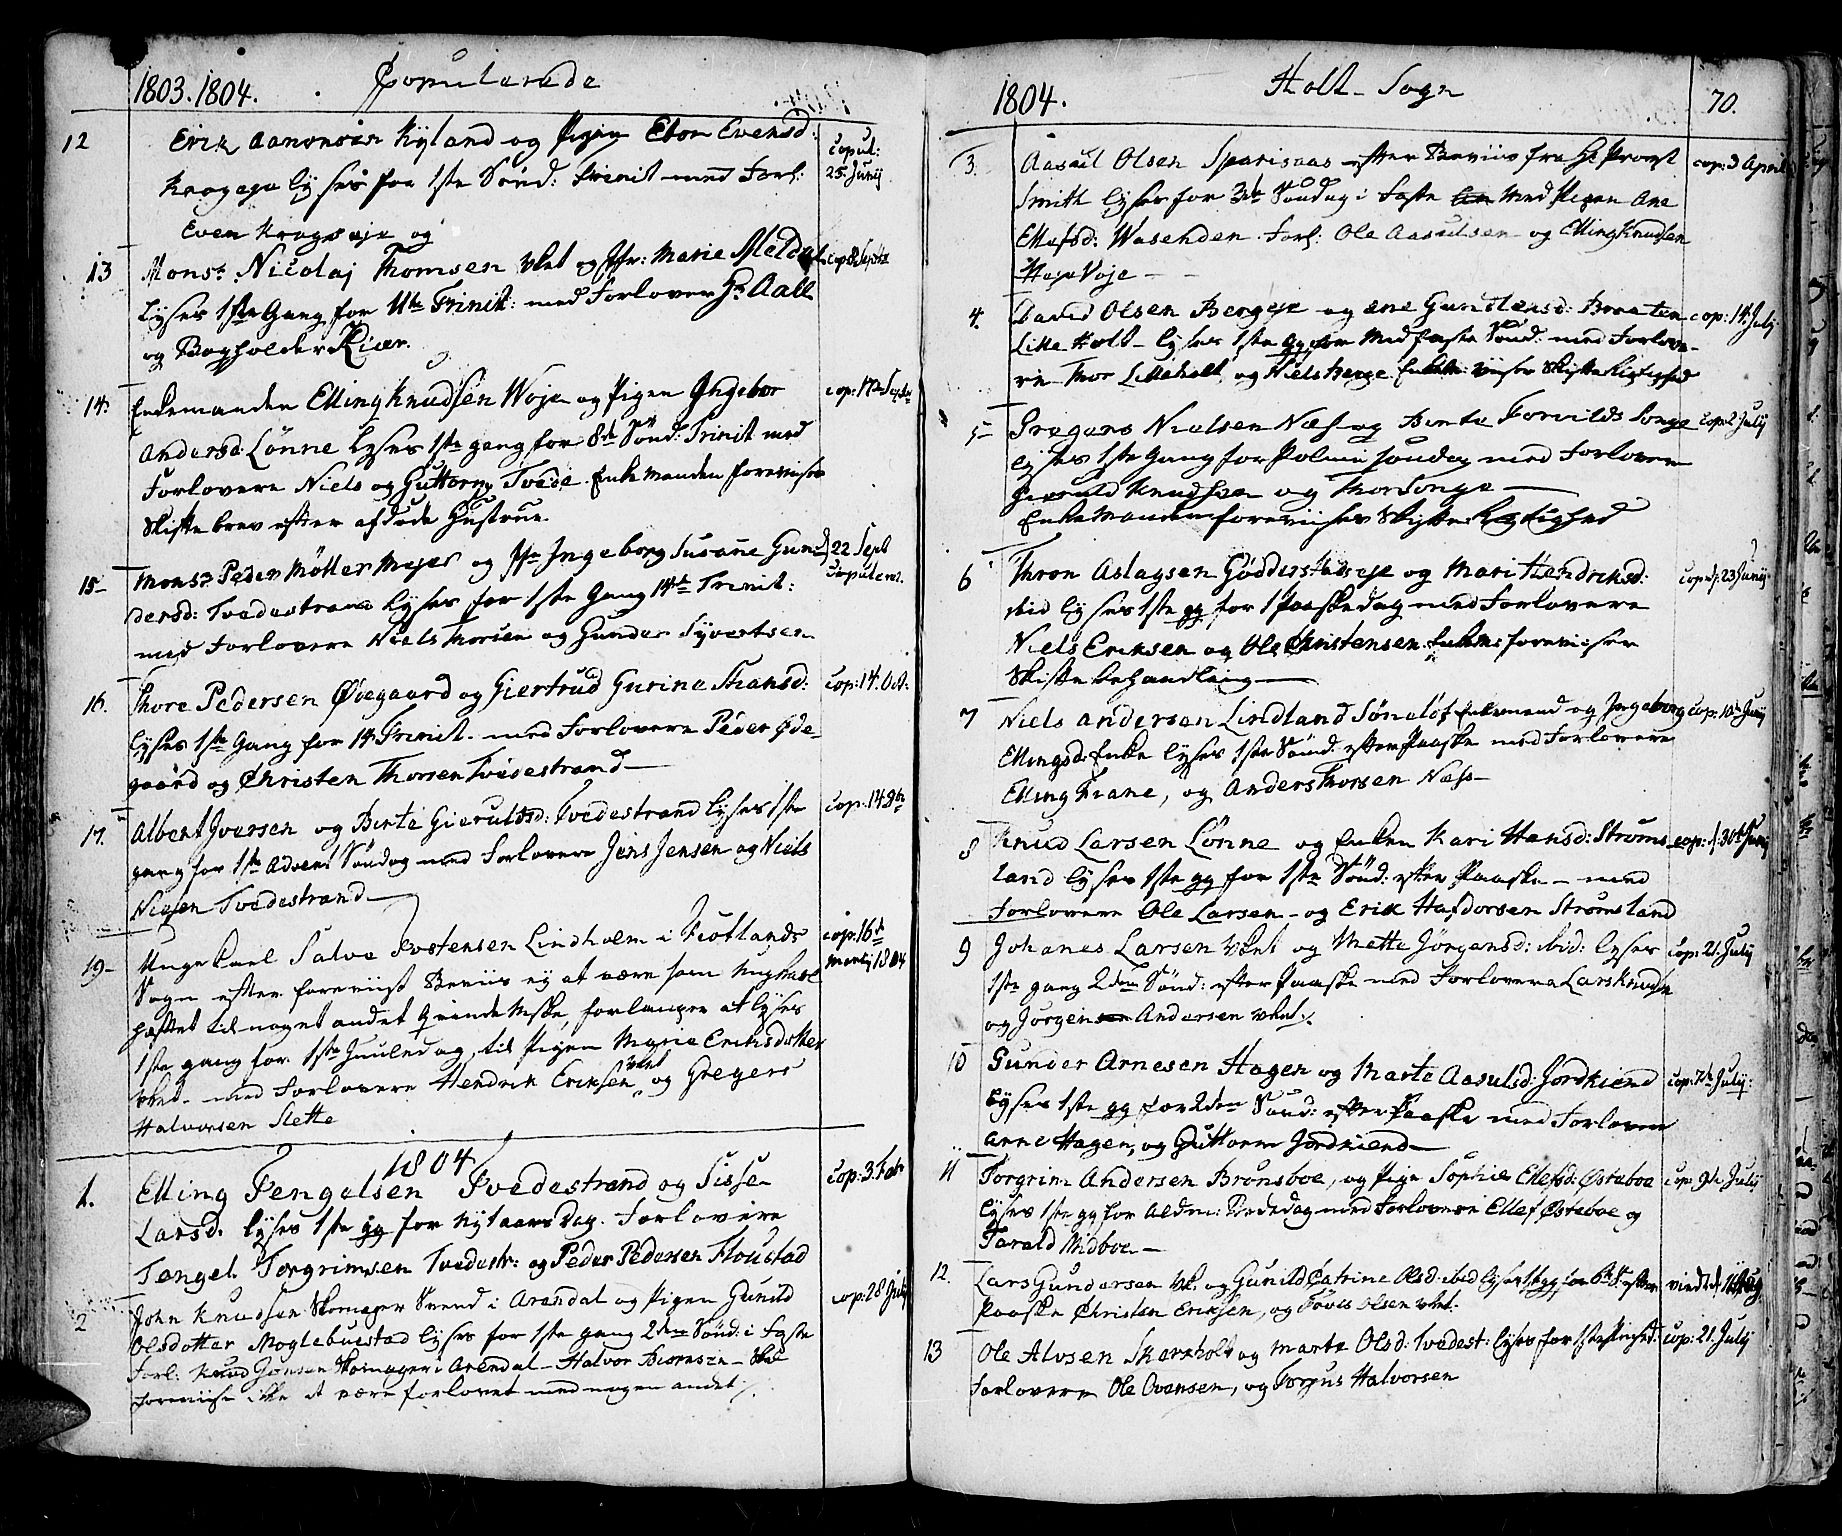 1803.1804. Copulerede
12 Erik Aanonsen Kyland og Pigen Ebor Evensd:
Kragseje lyses for 1ste Sönd: Trinit med Forl:
Even Kragseje og
copul: 25 Junij
13 Mons: Nicolaj Thomsen vbet og Jfr: Marie Meldal
lyses 1ste Gang for 11te Trinit: med Forlover Hr Aall
og Bogholder Kiær.
cop 8 Septbr
14. Enkemanden Elling Knudsen Woje og Pigen Ingebor
Andersd Lönne lyses 1ste gang for 8de Sönd: Trinit med
Forlovere Niels og Guttorm Tvede. Enkemanden foreviser
Skiftebrev efter afdöde Hustrue.
cop: 17de Septr
15 Mons: Peder Möller Mejer og Jfr Ingeborg Susane Gun
dersd: Tvedestrand lyses for 1ste Gang 14de Trinit:
med Forlovere Niels Thorsen og Gunder Syvertsen
22 Sept copulered
16. Thore Pedersen Ödegaard og Giertrud Gurine Stiansd:
lyses 1ste Gang for 14 Trinit. med Forlovere Peder Öde-
gaard og Christen Thorsen Tvedestrand
cop: 14. Oct:
17. Albert Iversen og Berte Gierulfsd: Tvedestrand lyses 1ste
gang for 1ste Advent Söndag med Forlovere Jens Jensen og Niels
Nielsen Tvedestrand
cop: 14
19 Ungekarl Salve Tostensen Lindholm i Fiotlands
Sogn efter foreviist Beviis ej at være som Ungkarl
hæftet til noget andet Qvindemske, forlanger at lyses
1ste gang for 1ste Juuledag, til Pigen Marie Eriksdatter
vbet. med Forlovere Hendrik Eriksen vbet og Gregers
Halvorsen Slette
cop: 16de Martij 1804
1804
1. Elling Tengelsen Tvedestrand og Sisse
Larsd. lyses 1ste gg for Nytaarsdag. Forlovere
Tengel Torgrimsen Tvedestr: og Peder Pedersen Floustad
cop: 3 Febr
2 John Knudsen Skomager Svend i Arendal og Pigen Gunild
Olsdotter Moglebuestad lyses for 1ste gang 2den Sönd: i Faste
Forl: Knud Jonsen Skomager i Arendal - Halvor Biornsen -
Foreviiser ikke at være forlovet med nogen andet
cop: 28 July
1804. Holt Sogn 70.
3. Aasul Olsen Sparisaas efter Beviis fra Hr Provst
Smith lyses for 3de Söndag i Faste med Pigen Ane
Ellefsd: Wasenden. Forl: Ole Aasulsen og Elling Knudsen
Hageroje
cop: 3 Aprili
4. David Olsen Bergeje og Ane Gundersd: Braaten
Lille Holt - lyses 1ste gg for Midfaste Sönd: med Forlove-
re Thor Lilleholt og Niels Berge Enkem: viser Skifte Rigtighed
cop: 14 July
5 Gregers Nielsen Næs og Berte Torvilds Songe
lyses 1ste Gang for Palmesöndag med Forlovere
Gieruld Knudsen og Thor Songe
Enkemanden foreviiser Skifte Rigtighed
cop: 2 July
6 Thron Aslagsen Goderstadeje og Mari Hendriksd:
ibid lyses 1ste gg for 1 Paaskedag med Forlovere
Niels Eriksen og Ole Christensen. Enkem: foreviser
Skiftebehandling
cop: d: 23 Junij
7 Niels Andersen Lindland Söneløf Enkemand og Ingeborg
Ellingsd: Enke lyses 1ste Sönd: efter Paaske med Forlovere
Elling Fiane, og Anders Thorsen Næs
cop: 10de Junij
8 Knud Larsen Lönne og Enken Kari Hansd: Ströms
land lyses 1ste gg for 1ste Sönd: efter Paaske - med
Forlovere Ole Larsen - og Erik Hafdorsen Strömsland
cop: d: 30t Junij
9 Johanes Larsen vbet og Mette Jörgensd: ibid: lyses
1ste gang 2den Sönd: efter Paaske med Forlovere Lars Knudsen
og Jörgen Andersen vbet.
cop: 21. July
10 Gunder Arnesen Hagen og Marte Aasulsd: Jordkiend
lyses 1ste gg for 2den Sönd: efter Paaske med Forlovere
Arne Hagen, og Guttorm Jordkiend
cop: 7de July:
11 Torgrim Andersen Brönsboe, og Pige Sophie Ellefsd: Østeboe
lyses 1ste gg for Alm: Bededag med Forlovere Ellef Østeboe og
Tarald Midboe
cop: 9de July
12. Lars Gundersen vb. og Gunild Catrine Olsd: ibid lyses 1ste gg for efter
Paaske Christen Eriksen, og Töves Olsen vbet.
viede d: 11 Aug
13 Ole Alvsen Skarholt og Marte Olsd: Tvedest: lyses for 1ste Pintsed:
Forlovere Ole Ovensen, og Torjus Halvorsen
cop: 21. July